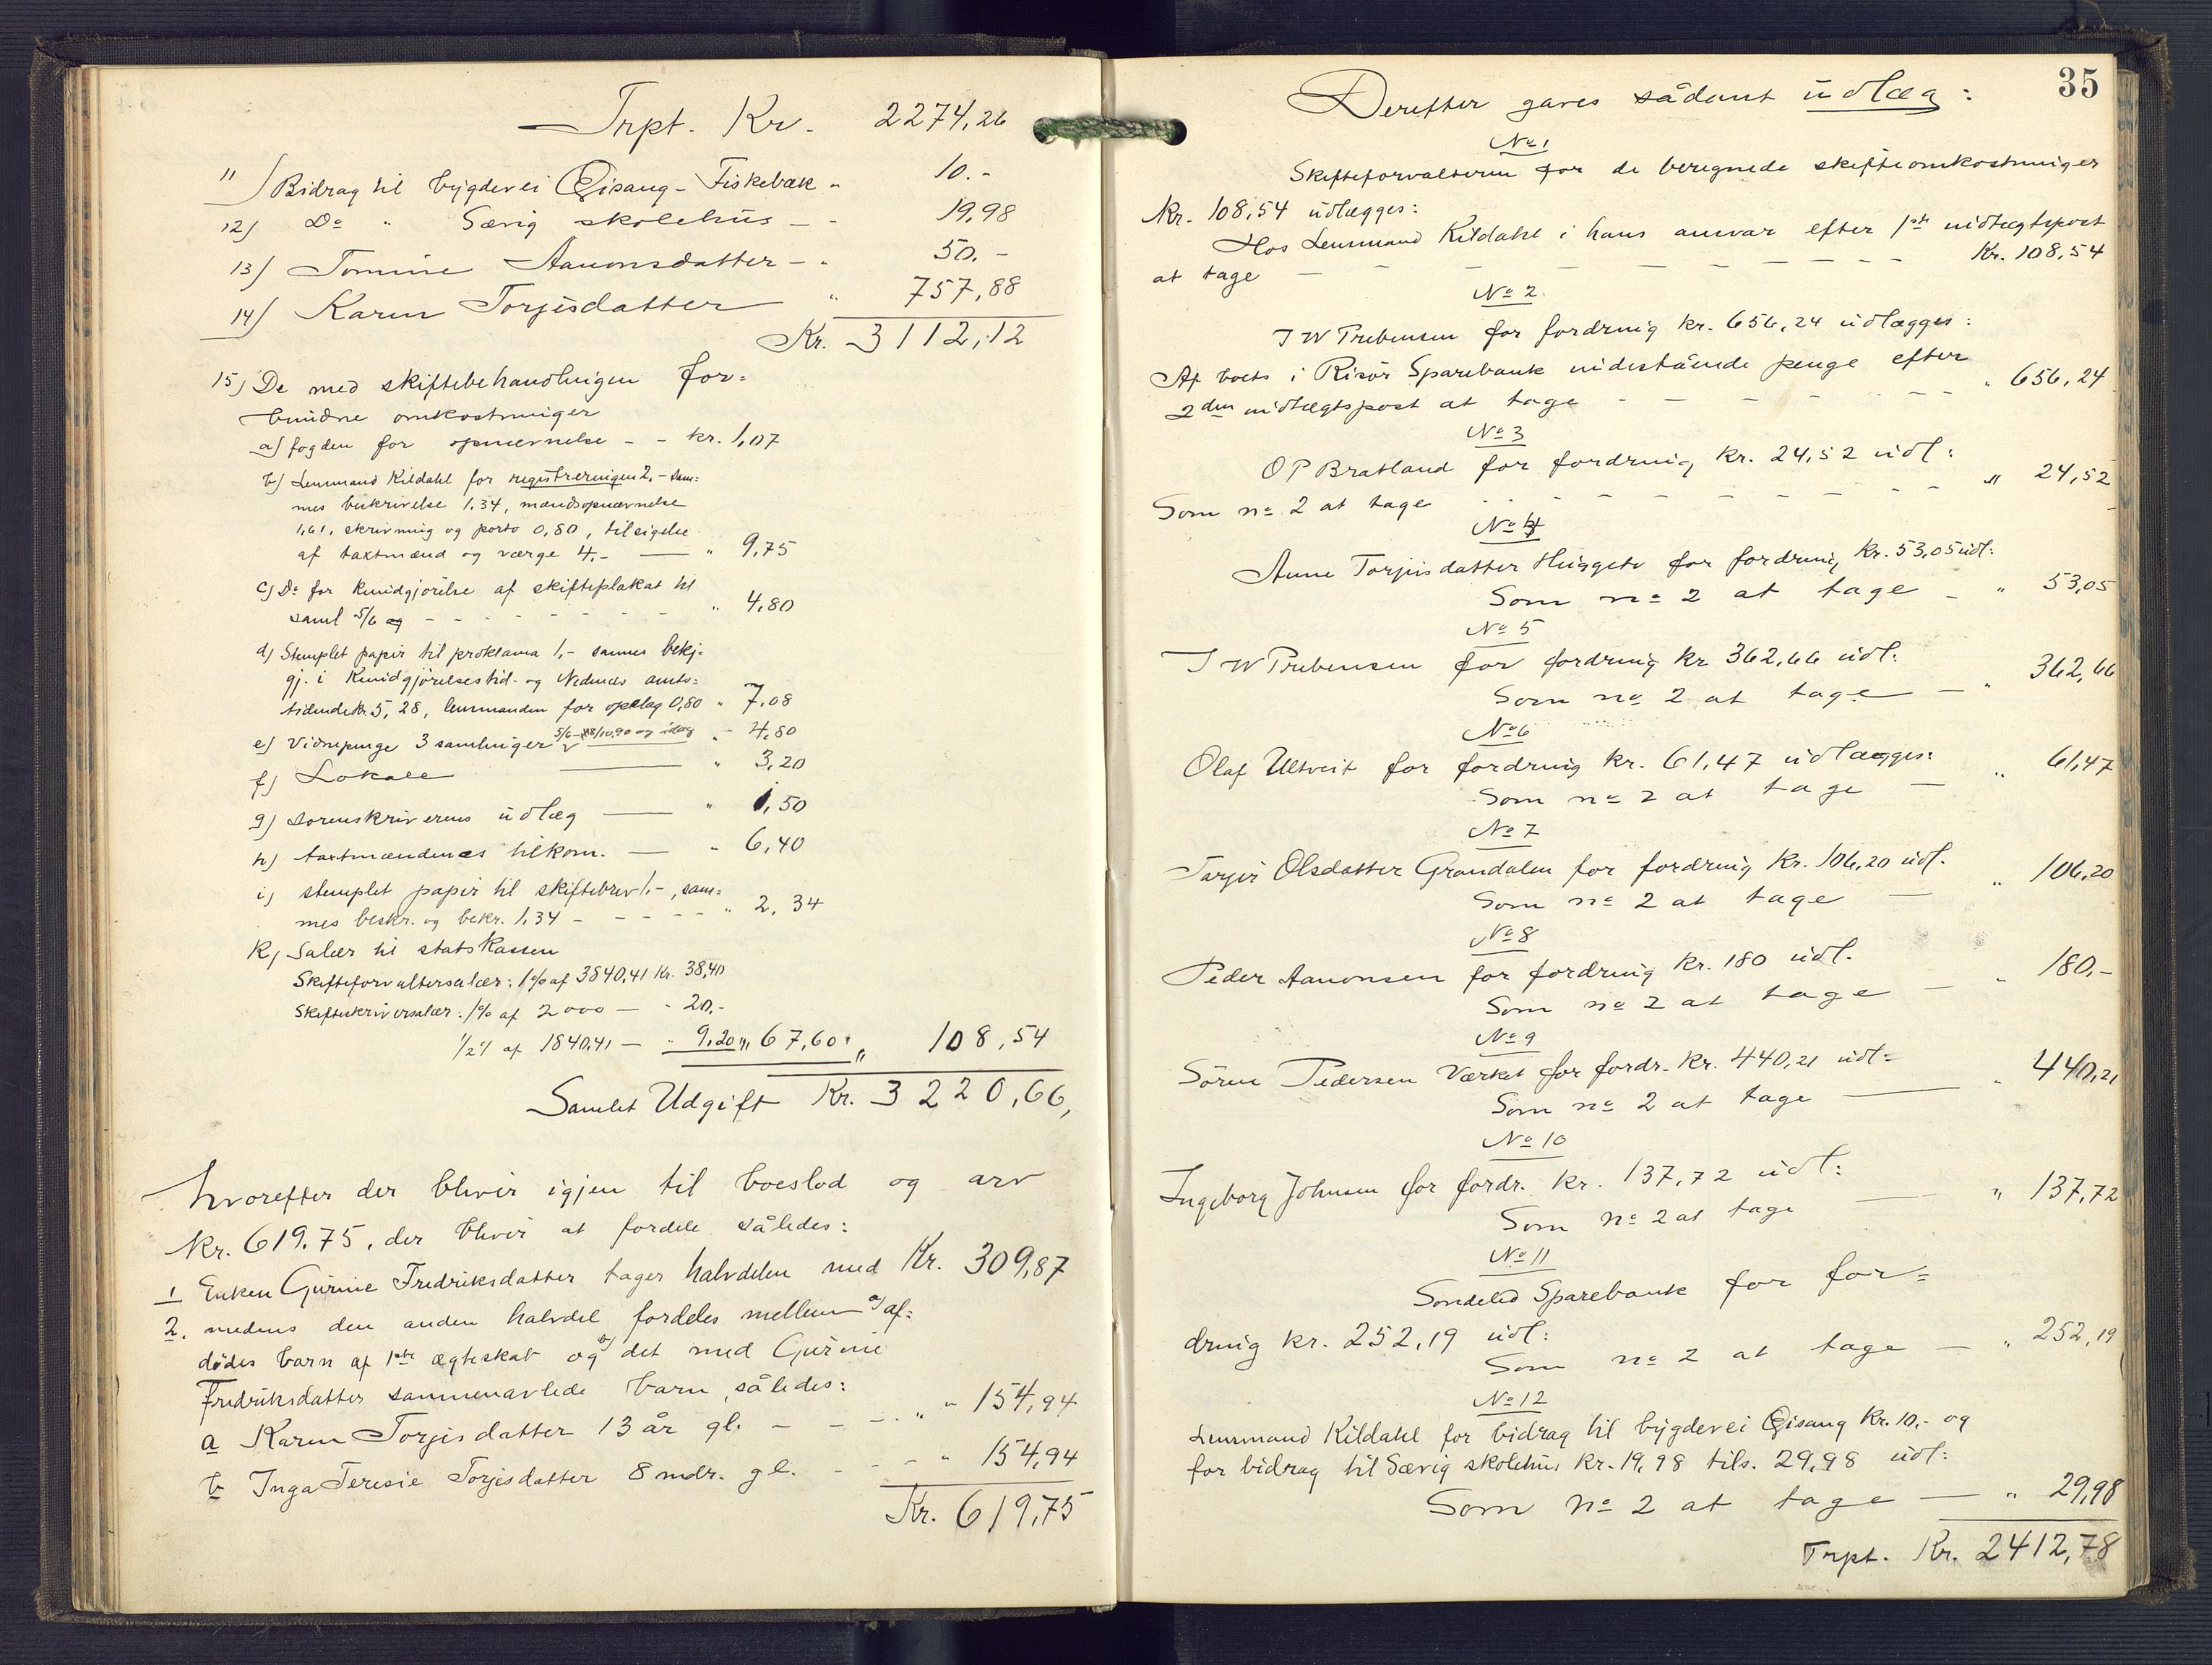 Trpt. Kr. 2274,26
11) Bidrag til bygdevei Gisang - Fiskebæk " 10.-
12) Do " Sævig skolehus - " 19,98
13) Tomine Aanonsdatter - " 50.-
14) Karen Torjisdatter " 757,88
Kr. 3112,12
15) De med skiftebehandlingen for=
bundne omkostninger
a) fogden for opnævnelse - - kr. 1,07
b) Lensmand Kildahl for registreringen 2,- sam=
mes beskrivelse 1,34, mandsopnævnelse
1,61, skrivning og porto 0,80, tilsigelse
af taxtmænd og værge 4.- — " 9,75
c) Do for kundgjørelse af skifteplakat til
saml 5/6 og - - - - - - - " 4,80
d) Stemplet papir til proklama 1,- sammes bekj-
gj. i Kundgjørelsestid. og Nedenæs amts=
tidende kr. 5,28, lensmanden for opslag 0,80 " 7,08
e) Vidnepenge 3 samlinger 5/6 - 18/10.90 og idag " 4,80
f) Lokale — " 3,20
g) sorenskriverens udlæg — " 1,50
h) taxtmændenes tilkom. — " 6,40
i) stemplet papir til skiftebrev 1.-, sam=
mes beskr. og bekr. 1,34 - - - - - " 2,34
k) Salær til statskassen
Skifteforvaltersalær: 1% af 3840,41 Kr. 38,40
Skifteskriversalær: 1% af 2000 — " 20,-
1/2% af 1840,41 — " 9,20 " 67,60 " 108,54
Samlet Udgift Kr. 3220,66,
hvorefter der bliver igjen til boeslod og arv
Kr. 619,75, der bliver at fordele således:
1 Enken Gurine Fredriksdatter tager halvdelen med Kr. 309,87
2. medens den anden halvdel fordeles mellem a) af=
dødes barn af 1ste ægteskab og b) det med Gurine
Fredriksdatter sammenavlede barn, således:
a Karen Torjisdatter 13 år gl. - - -. " " 154,94
b Inga Teresie Torjisdatter 8 mdr. gl. - - - " 154,94
Kr. 619,75
35
Derefter gaves sådant udlæg:
No 1
Skifteforvalteren for de beregnede skifteomkostninger
Kr. 108,54 udlægges:
Hos Lensmand Kildahl i hans ansvar efter 1ste indtægtspost
at tage - - - - - - - - - - Kr. 108,54
No 2.
J W Prebensen for fordring kr. 656,24 udlægges:
Af boets i Risør Sparebank indestående penge efter
2den indtægtspost at tage - - - - - - - " 656,24
No 3
O P Bratland for fordring kr. 24,52 udl:
Som no 2 at tage - - - - - - - - - - " 24,52
No 4
Anne Torjisdatter for fordring kr. 53,05 udl:
Som no 2 at tage - " 53,05
No 5
J W Prebensen for fordring kr 362,66 udl:
Som no 2 at tage — " 362,66
No 6
Olaf Ultveit for fordring kr. 61,47 udlægges:
Som no 2 at tage — " 61,47
No 7
Tarjer Olsdatter Grandalen for fordring kr. 106,20 udl.
Som no 2 at tage — " 106,20
No 8
Peder Aanonsen for fordring kr. 180 udl.
Som no 2 at tage — " 180,-
No 9
Sören Pedersen Værket for fordr. kr. 440,21 udl=
Som no 2 at tage — " 440,21
No 10
Ingeborg Johnsen for fordr. kr. 137,72 udl:
Som no 2 at tage — " 137,72
No 11
Søndeled Sparebank for for=
dring kr. 252,19 udl:
Som no 2 at tage — " 252,19
No 12
Lensmand Kildahl for bidrag til bygdevei Gisang kr. 10,- og
for bidrag til Sævig skolehus kr. 19,98 tils. 29,98 udl:
Som no 2 at tage — " 29,98
Trpt. Kr. 2412,78